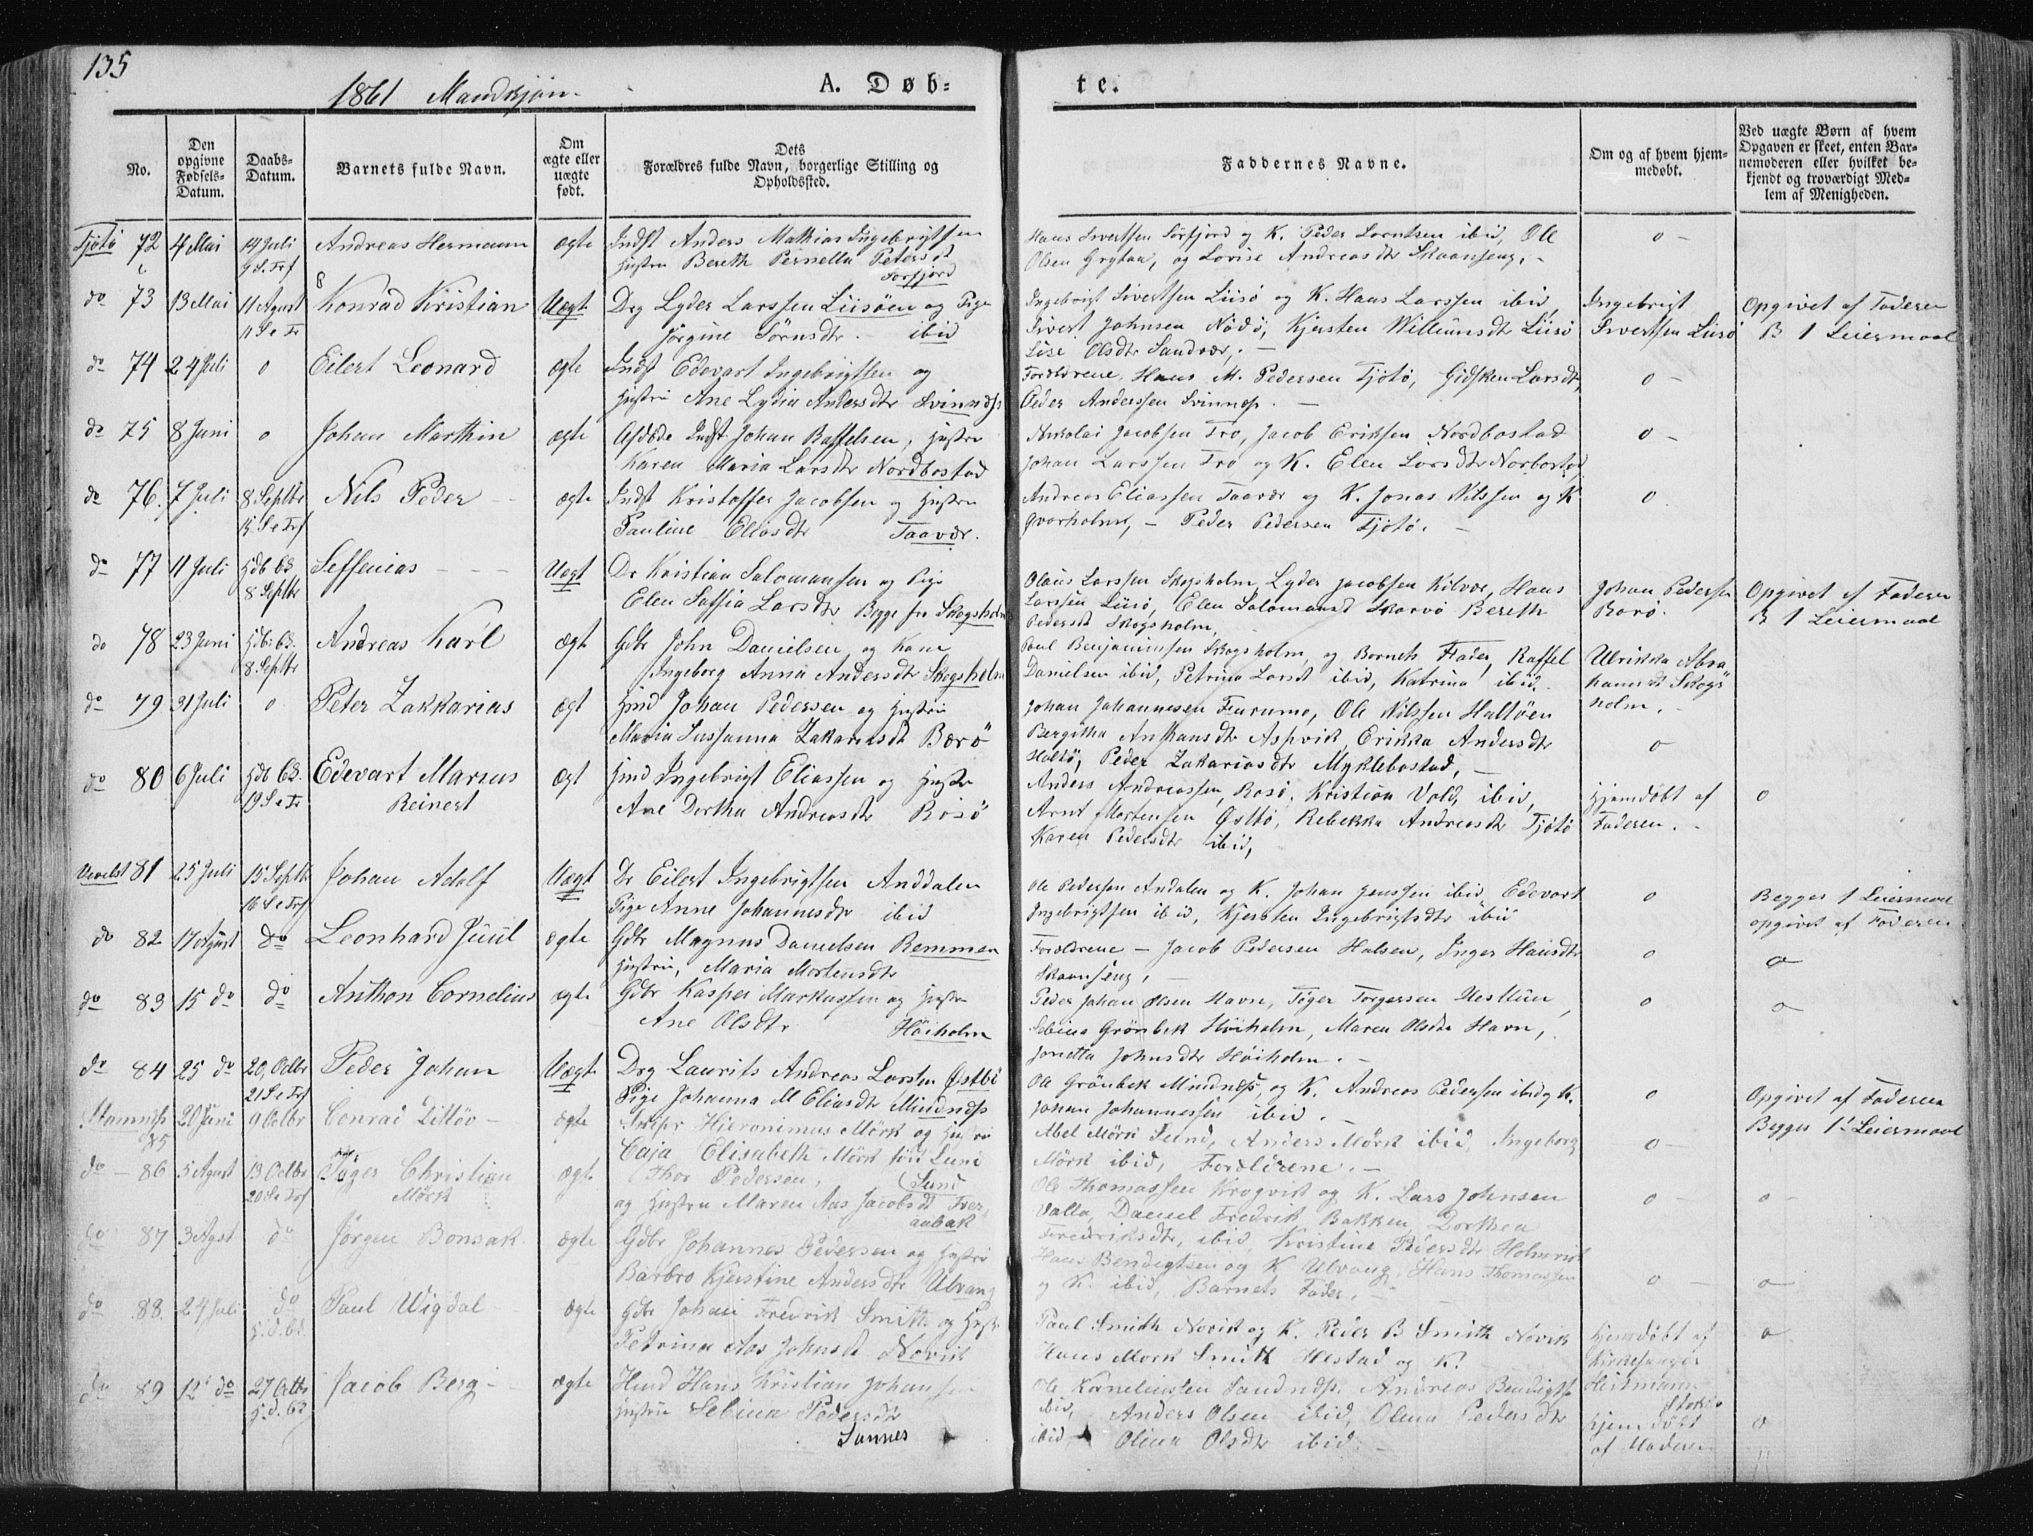 135
1861 Mandkjøn.
A. Døb-
te.
No.
Den opgivne Fødsels-Datum.
Daabs-Datum.
Barnets fulde Navn.
Om ægte eller uægte født.
Dets Forældres fulde Navn, borgerlige Stilling og Opholdssted.
Faddernes Navne.
Om og af hvem hjem-medøbt.
Ved uægte Børn af hvem Opgaven er skeet, enten Bar-nemoderen eller hvilket be-kjendt og troværdigt Med-lem af Menigheden.
Tjøtø 72 4 Mai 14 Juli Andreas Hermann ægte Indst Anders Mathias Ingebrigtsen
Hustru Bereth Pernella Petersdt
Hans Sivertsen Sørfjord og K. Peder Lorntsen ibid, Ole
Olsen Grytaa, og Lovise Andreasdtr
do 73 13 Mai 11 Agust Konrad Kristian Uægt Drg Lyder Larssen Liisøen og Pige
Jørgine ibid
Ingebrigt Sivertsen Liisø og K. Hans Larssen ibid,
Sivert Johnsen Nodø, Kjersten Willumsdtr Liisø
Lise Olsdtr Sandvær.
Ingebrigt
Sivertsen Liisø
Opgivet af Faderen
B 1 Leiermaal
do 74 24 Juli o Eilert Leonard ægte Indst Edevart Ingebrigtsen og
Hustru Ane Lydia Andersdtr Svinnæs
Forældrene, Hans M. Pedersen Tjøtø, Gidsken Larsdtr,
Peder Anderssen Svinnæs. o
do 75 8 Juni o Johan Marthin ægte Afdøde Indst Johan Raffelsen, Hustru
Karen Maria Larsdtr Nordbostad
Nikolai Jacobsen Tro, Jacob Eriksen Nordbostad
Johan Larssen Tro og K. Elen Larsdtr Norbostad o
do 76. 7 Juli 8 Septbr Nils Peder ægte Indst Kristoffer Jacobsen og Hustru
Pauline Eliasdtr Taavær.
Andreas Eliassen Taavær og K. Jonas Nilssen og K
Qvarholm, Peder Pedersen Tjøtø. o
do 77 11 Juli 8 Septbr Seffenias Uægt Dr Kristian Salomonsen og Pige
Elen Soffia Larsdtr Begge fra Skogsholm
Olaus Larssen Skogsholm, Lyder Jacobsen Kilvær, Hans
Larssen Liisø, Elen Salomonsd Skarvø Bereth
Pedersdt Skogsholm,
Johan Pedersen
Barø.
Opgivet af Faderen
B 1 Leiermaal
do 78 23 Juni 8 Septbr Andreas Karl ægt Gdbr John Danielsen og Kone
Ingeborg Anna Andersdtr Skogsholm
Paul Benjaminsen Skogsholm, og Barnets Fader, Raffel
Danielsen ibid, Petrina Larsdt ibid, Katrina ibid.
Ulrikka Abra
hamsdt Skogs
holm.
do 79 31 Juli o Peter Zakkarias ægt Hmd Johan Pedersen og Hustru
Maria Sussanna Zakariasdt Bærø
Johan Johannesen Fuurumo, Ole Nilssen Haltøen
Bergitha Aspvik, Erikka Andersdtr
Haltø, Peder Zakariasdtr Myklebostad, o
do 80 6 Juli Edevart Marius
Reinert ægt Hmd Ingebrigt Eliassen og Hustru
Ane Dorthea Andreasdtr Rosø
Anders Andreassen, Rosø, Kristian Vold, ibid,
Arnt Mortensen Østbø, Rebekka Andreasdtr Tjøtø
Karen Pedersdtr ibid,
Hjemdøbt af
Faderen. o
81 25 Juli 15 Septbr Johan Adolf Uægt Dr Eilert Ingebrigtsen Anddalen
Pige Anne Johannesdtr ibid
Ole Pedersen Andalen og K. Johan Jenssen ibid, Edevart
Ingebrigtsen ibid, Kjersten Ingebrigtsdtr ibid o
Begges 1 Leiermaal
opgivet af Faderen
do 82 17 Agust do Leonhard Juul ægte Gdbr Magnus Danielsen Remmen
Hustru, Maria Mortensdtr
Forældrene - Jacob Pedersen Halsen, Inger Hansdtr
o o
do 83 15 do do Anthon Cornelius ægte Gdbr Kasper Markussen og Hustru
Ane Olsdtr Høiholm
Peder Johan Olsen Havn, Tøger Torgersen
Sebina Grønbek Høiholm, Maren Olsdtr Havn,
Jonetta Johnsdtr Høiholm. o o
do 84 25 do 20 Octbr Peder Johan Uægt Drg Laurits Andreas Larsen Østbø
Pige Johanna M Eliasdtr Mindnæs
Ole Grønbek Mindnæs, og K. Andreas Pedersen ibid og K.
Johan Johannessen ibid. o
Opgivet af Faderen
Begges 1 Leiermaal
85 20 Juni 9 Octbr Conrad Dittløv ægte Hieronimus Mørk og Hustru
Caja Elisabeth Mørk Sund
Abel Mørk Sund, Anders Mørk ibid, Ingeborg
Mørk ibid, Forældrene. o
do 86 5 Agust 13 Octbr Tøger Christian
Mørk ægte Thor Pedersen, (Sund
og Hustru Maren Aas Jacobsdt
Ole Thomassen Krogvik og K. Lars Johnsen
Valla, Daniel Fredrik Bakken, Dorthea
Fredriksdtr, ibid, Kristine Pedersdtr Holmvik o o
do 87 3 Agst do Jørgen Bonsak ægte Gdbr Johannes Pedersen og Hustru
Barbro Kjerstine Andersdtr Ulvang
Hans Bendigtsen og K Ulvang, Hans Thomassen
og K. ibid, Barnets Fader, o o
do 88. 24 Juli do Paul Wigdal ægte Gdbr Johan Fredrik Smith og Hustr
Petrina Aas Johnsdt Novik
Paul Smith Novik og K. Peder B Smith Novik
Hans Mørk Smith Alstad og K.
Hjemdøbt af
Kirkesanger
Heitmann o
do 89 12 do 27 Octbr Jacob Berg ægte Hmd Hans Kristian Johansen
Hustru Sebina Pedersdtr
Sannes
Ole Korneliussen Sandnæs, Andreas Bendigts
ibid, Anders Olsen ibid, Olina Pedersdtr
ibid, Olina Olsdtr ibid.
Hjemdøbt
af Moderen o